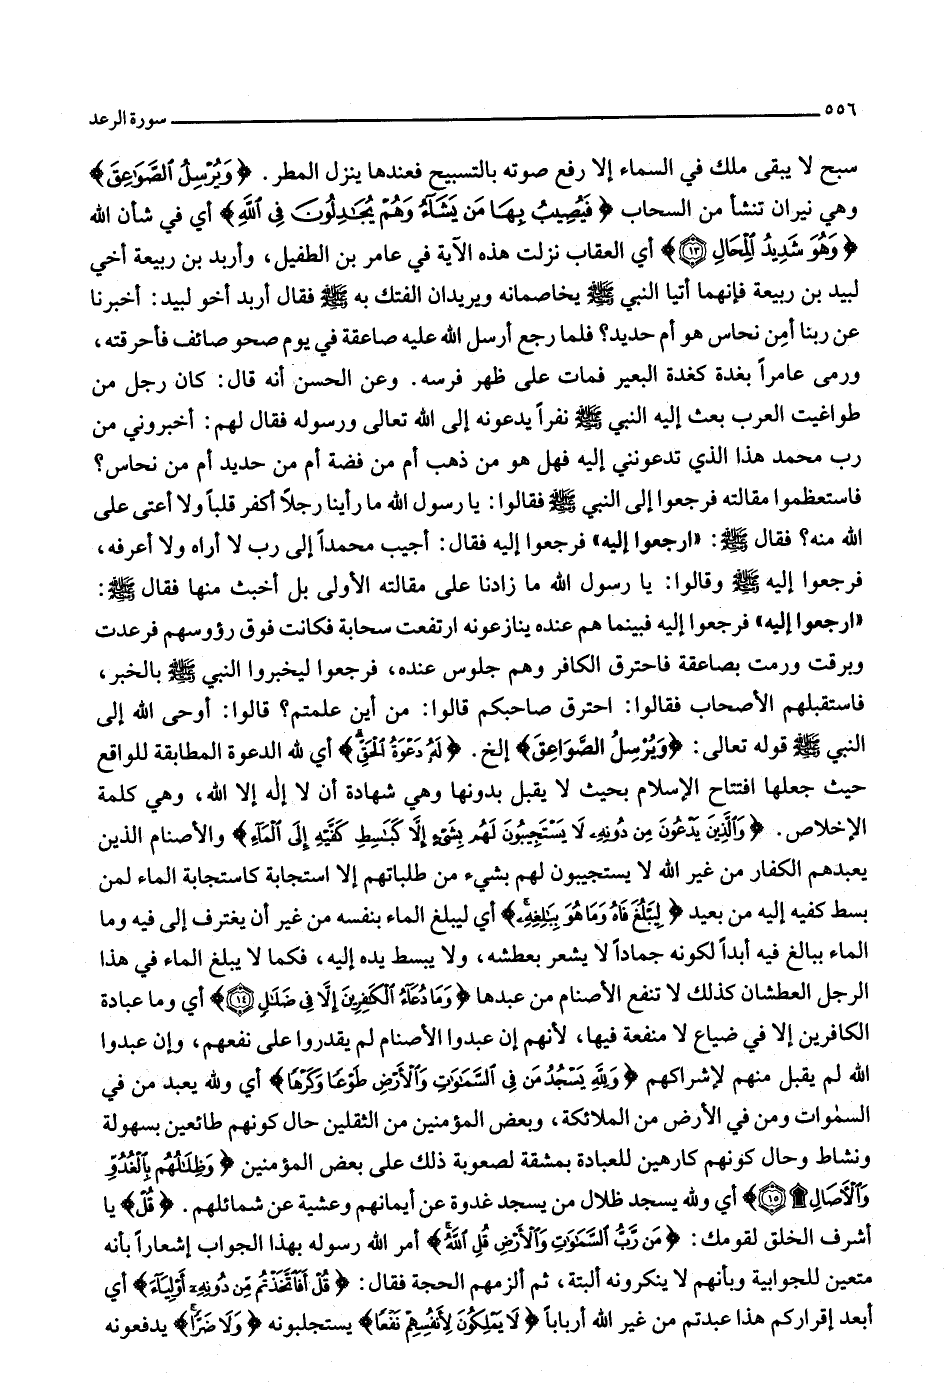 ٥٥٦ سورة الرعد
سبح لا يبقى ملك في السماء إلا رفع صوته بالتسبيح فعندها ينزل المطر. ﴿وَيُرْسِلُ الصَّوَاعِقَ﴾
وهي نيران تنشأ من السحاب ﴿فَيُصِيبُ بِهَا مَن يَشَاءُ وَهُمْ يُجَٰدِلُونَ فِى ٱللَّهِ﴾ أي في شأن الله
﴿وَهُوَ شَدِيدُ ٱلْمِحَالِ ١٣﴾ أي العقاب نزلت هذه الآية في عامر بن الطفيل، وأربد بن ربيعة أخي
لبيد بن ربيعة فإنهما أتيا النبي ﷺ يخاصمانه ويريدان الفتك به ﷺ فقال أربد أخو لبيد: أخبرنا
عن ربنا أمِن نحاس هو أم حديد؟ فلما رجع أرسل الله عليه صاعقة في يوم صحو صائف فأحرقته،
ورمى عامراً بغدة كغدة البعير فمات على ظهر فرسه. وعن الحسن أنه قال: كان رجل من
طواغيت العرب بعث إليه النبي ﷺ نفراً يدعونه إلى الله تعالى ورسوله فقال لهم: أخبروني من
رب محمد هذا الذي تدعونني إليه فهل هو من ذهب أم من فضة أم من حديد أم من نحاس؟
فاستعظموا مقالته فرجعوا إلى النبي ﷺ فقالوا: يا رسول الله ما رأينا رجلاً أكفر قلباً ولا أعتى على
الله منه؟ فقال ﷺ: «ارجعوا إليه» فرجعوا إليه فقال: أجيب محمداً إلى رب لا أراه ولا أعرفه،
فرجعوا إليه ﷺ وقالوا: يا رسول الله ما زادنا على مقالته الأولى بل أخبث منها فقال ﷺ:
«ارجعوا إليه» فرجعوا إليه فبينما هم عنده ينازعونه ارتفعت سحابة فكانت فوق رؤوسهم فرعدت
وبرقت ورمت بصاعقة فاحترق الكافر وهم جلوس عنده، فرجعوا ليخبروا النبي ﷺ بالخبر،
فاستقبلهم الأصحاب فقالوا: احترق صاحبكم قالوا: من أين علمتم؟ قالوا: أوحى الله إلى
النبي ﷺ قوله تعالى: ﴿وَيُرْسِلُ الصَّوَاعِقَ﴾ إلخ. ﴿لَهُ دَعْوَةُ ٱلْحَقِّ﴾ أي لله الدعوة المطابقة للواقع
حيث جعلها افتتاح الإسلام بحيث لا يقبل بدونها وهي شهادة أن لا إله إلا الله، وهي كلمة
الإخلاص. ﴿وَٱلَّذِينَ يَدْعُونَ مِن دُونِهِۦ لَا يَسْتَجِيبُونَ لَهُم بِشَىْءٍ إِلَّا كَبَٰسِطِ كَفَّيْهِ إِلَى ٱلْمَآءِ﴾ والأصنام الذين
يعبدهم الكفار من غير الله لا يستجيبون لهم بشيء من طلباتهم إلا استجابة كاستجابة الماء لمن
بسط كفيه إليه من بعيد ﴿لِيَبْلُغَ فَاهُ وَمَا هُوَ بِبَٰلِغِهِۦ﴾ أي ليبلغ الماء بنفسه من غير أن يغترف إلى فيه وما
الماء ببالغ فيه أبداً لكونه جماداً لا يشعر بعطشه، ولا يبسط يده إليه، فكما لا يبلغ الماء في هذا
الرجل العطشان كذلك لا تنفع الأصنام من عبدها ﴿وَمَا دُعَآءُ ٱلْكَٰفِرِينَ إِلَّا فِى ضَلَٰلٍ ١٤﴾ أي وما عبادة
الكافرين إلا في ضياع لا منفعة فيها، لأنهم إن عبدوا الأصنام لم يقدروا على نفعهم، وإن عبدوا
الله لم يقبل منهم لإشراكهم ﴿وَلِلَّهِ يَسْجُدُ مَن فِى ٱلسَّمَٰوَٰتِ وَٱلْأَرْضِ طَوْعًا وَكَرْهًا﴾ أي ولله يعبد من في
السمٰوات ومن في الأرض من الملائكة، وبعض المؤمنين من الثقلين حال كونهم طائعين بسهولة
ونشاط وحال كونهم كارهين للعبادة بمشقة لصعوبة ذلك على بعض المؤمنين ﴿وَظِلَٰلُهُم بِٱلْغُدُوِّ
وَٱلْأَصَالِ ۩ ١٥﴾ أي ولله يسجد ظلال من يسجد غدوة عن أيمانهم وعشية عن شمائلهم. ﴿قُلْ﴾ يا
أشرف الخلق لقومك: ﴿مَن رَّبُّ ٱلسَّمَٰوَٰتِ وَٱلْأَرْضِ قُلِ ٱللَّهُ﴾ أمر الله رسوله بهذا الجواب إشعاراً بأنه
متعين للجوابية وبأنهم لا ينكرونه ألبتة، ثم ألزمهم الحجة فقال: ﴿قُلْ أَفَٱتَّخَذْتُم مِّن دُونِهِۦ أَوْلِيَآءَ﴾ أي
أبعد إقراركم هذا عبدتم من غير الله أرباباً ﴿لَا يَمْلِكُونَ لِأَنفُسِهِمْ نَفْعًا﴾ يستجلبونه ﴿وَلَا ضَرًّا﴾ يدفعونه